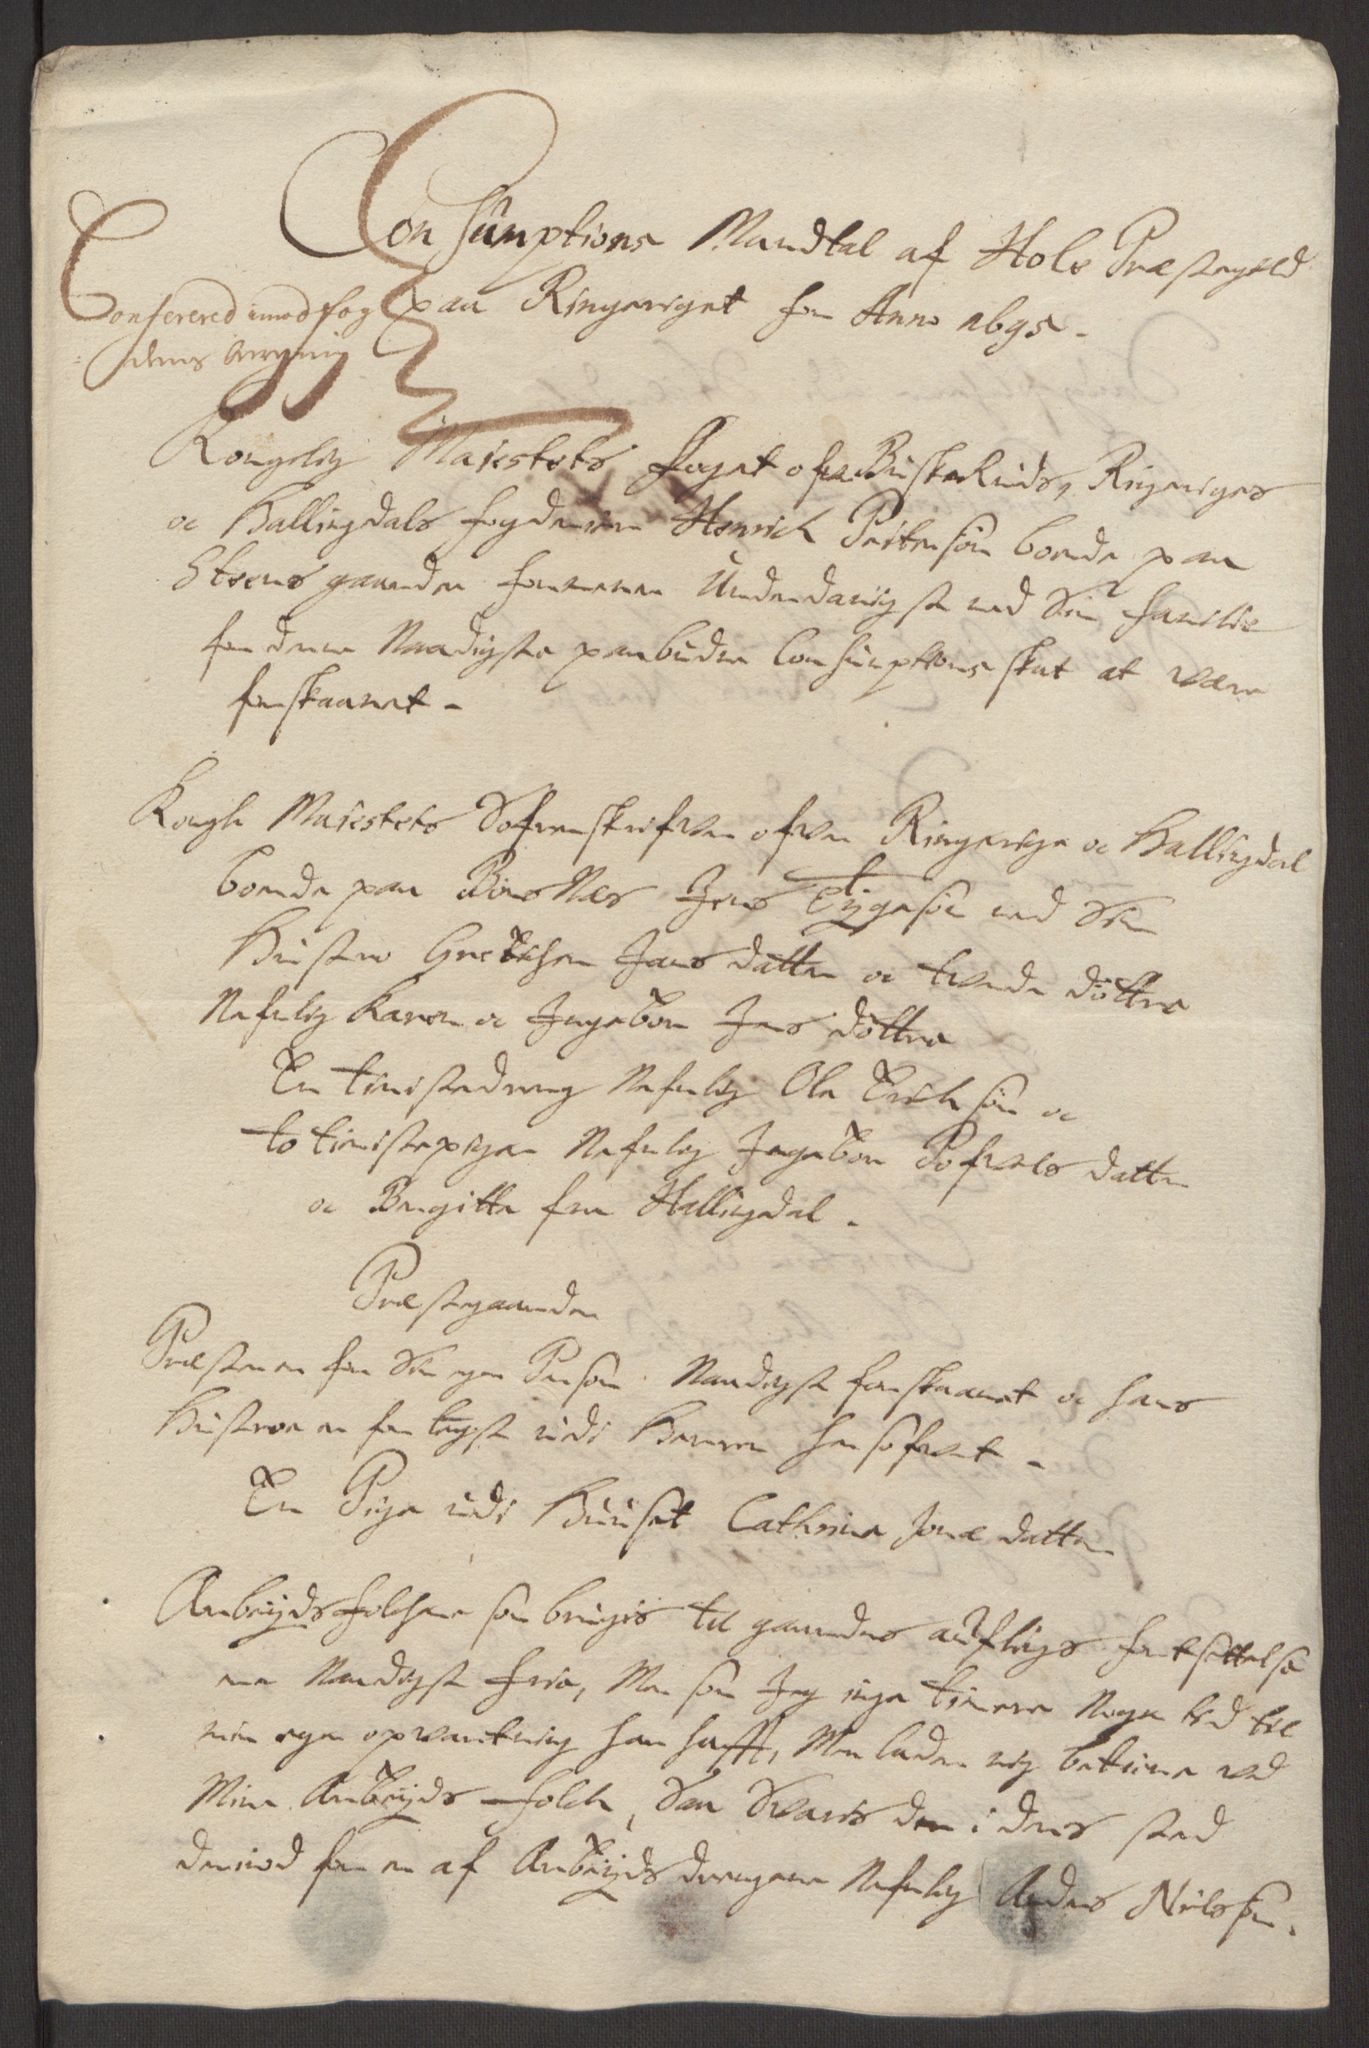 Consumptions Mandtal af Hole Præstegeld
paa Ringeriget for Anno 1695.
Conferered imod fog
dens
Kongelig Maiestets foget ofver Buskeruds, Ringeriges
oc Hallingdals fogderier Henrich Peitersøn boende paa
Steens gaarden formener Underdanigst med Sin familie
for denne Naadigste paabudne Consumptions skat at være
forskaanet -
Kongl: Maiestets Sofrenskrifver ofver Ringerige oc Hallingdal
boende paa Bøns Næs Jens Tygesøn med Sin
Hustro Gretchen Jans datter oc tvende døttre
Nefnlig Karen oc Ingebor Jens døttre
En tienistedreng Nefnlig Ole Erichsøn oc
to tienistepiger Nefnlig Ingebor Pofvels datter
oc Bergitta fra Hallingdal.
Præstegaarden
Præsten er for Sin egen Persøn Naadigst forskaanet oc hans
Hustroe er for legst udi Herren hensofvet -
En Pige udi Huuset Cathrina Jonæ datter
Arbeyds folchene som brugis til gaardens aufligs fortsættelse
ere Naadigst frie, Men som Jeg inge tienere Nogen tid til
min egen opvartning har hafft, Men lader mig betiene ved
Mine Arbeyds folch, Saa Svaris der i dens sted
derimod for en af Arbeyds drengene Nefnlig Anders Nielssøn.